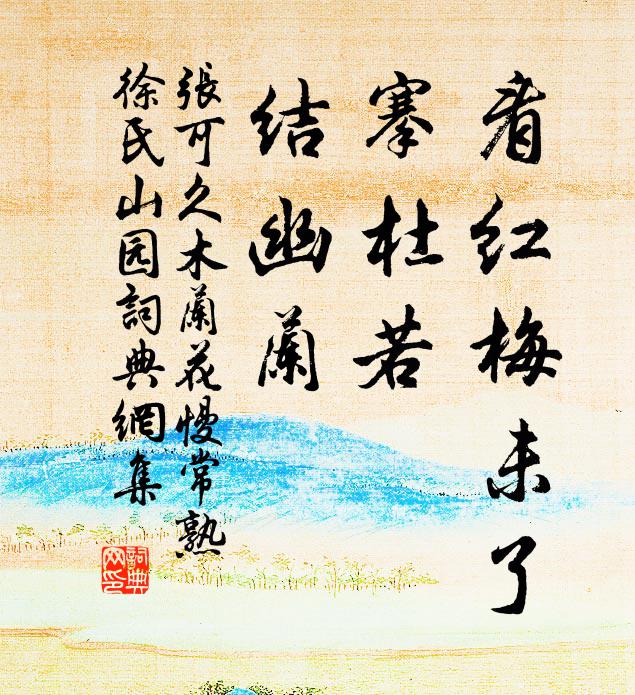 看红梅未了
搴杜若
结幽蘭
張可久木蘭花慢常熟
徐氏山园詞典網集
詞典
网印